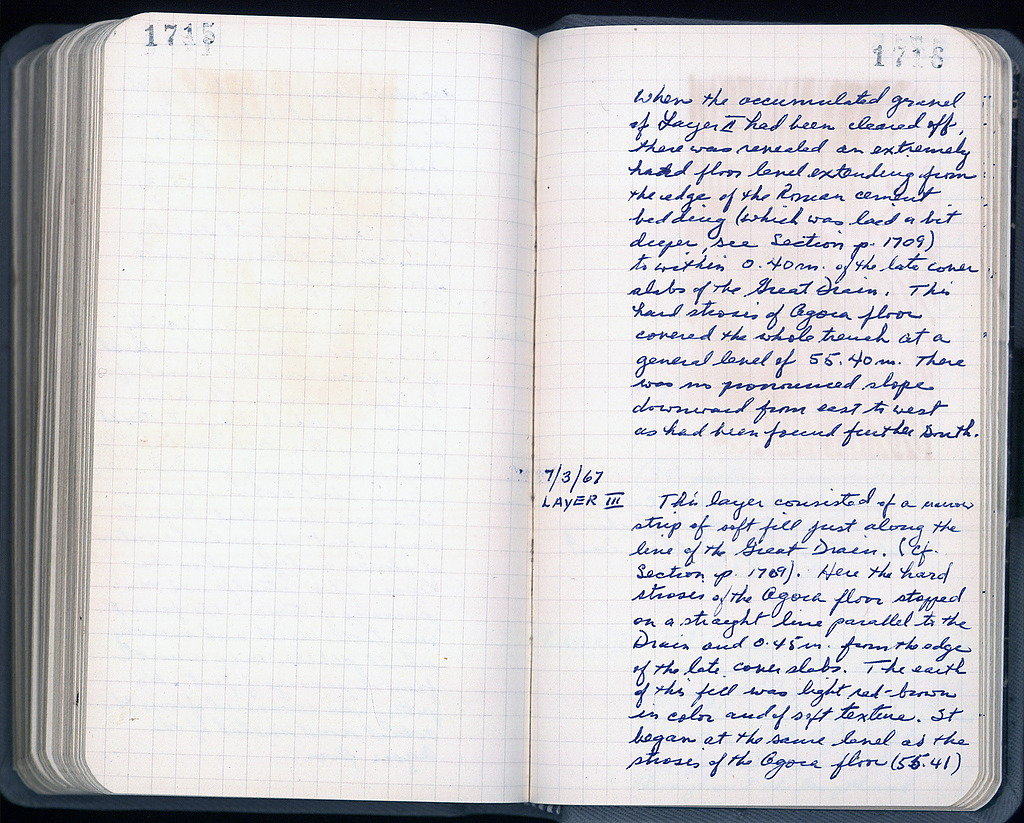 1715
1716
When the accumulated gravel
of Layer II had been cleared off,
there was revealed an extremely
hard floor level extending from
the edge of the Roman cement
bedding (which was laid a bit
deeper, see Section p. 1709)
to within 0.40 m. of the late cover
slabs of the Great Drain. This
hard strosis of Agora floor
covered the whole trench at a
general level of 55.40 m. There
was no pronounced slope
downward from east to west
as had been found further South.
7/3/67
LAYER III This layer consisted of a narrow
strip of soft fill just along the
line of the Great Drain. (Cf.
Section p. 1709). Here the hard
stroses of the Agora floor stopped
on a straight line parallel to the
Drain and 0.45 m. from the edge
of the late cover slabs. The earth
of this fill was light red-brown
in color and of soft texture. It
began at the same level as the
strosis of the Agora floor (55.41)